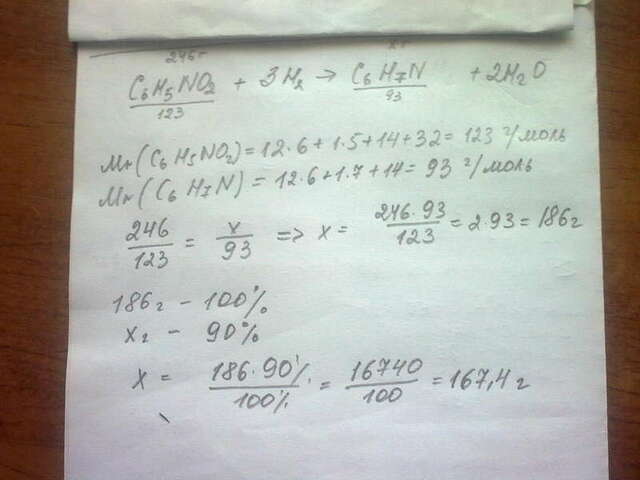 246г xг
C₆H₅NO₂ + 3H₂ → C₆H₇N + 2H₂O
123 93
Mr(C₆H₅NO₂)=12·6+1·5+14+32=123 г/моль
Mr(C₆H₇N)=12·6+1·7+14=93 г/моль
246/123 = x/93 => x = 246·93/123 = 2·93 = 186г
186г - 100%
xг - 90%
x = 186·90%/100% = 16740/100 = 167,4г